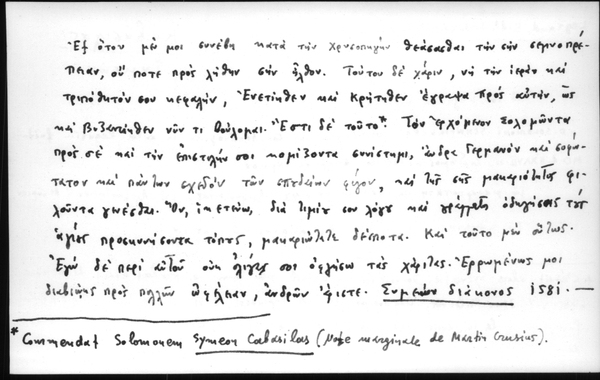 Ἐξ ὅτου μέν μοι συνέβη κατὰ τὴν Χρυσοπηγὴν θεάσασθαι τὴν σὴν σεμνοπρέ-
πειαν, οὔ ποτε πρὸς λήθην σὴν ἦλθον. Τούτου δὲ χάριν, νὴ τὴν ἱερὰν καὶ
τριπόθητόν σου κεφαλήν, Ἐνετίηθεν καὶ Κρήτηθεν ἔγραψα πρὸς αὐτήν, ὡς
καὶ Βυζαντίηθεν νῦν τι βούλομαι. Ἔστι δὲ τοῦτο* Τὸν ἐρχόμενον Σολομῶντα
πρὸς σὲ καὶ τὴν ἐπιστολήν σοι κομίζοντα συνίστημι, ἄνδρα Γερμανὸν καὶ σοφώ-
τατον καὶ πάντων σχεδὸν τῶν σπουδαίων φίλον, καὶ τῆς σῆς μακαριότητος φι-
λοῦντα γενέσθαι. Ὅν, ἱκετεύω, διὰ τιμίου σου λόγου καὶ γράμματος ὁδηγήσεις τοὺς
ἁγίους προσκυνήσοντα τόπους, μακαριώτατε δέσποτα. Καὶ τοῦτο μὲν οὕτως.
Ἐγὼ δὲ περὶ αὐτοῦ οὐκ ὀλίγας σοι ὀφλήσω τὰς χάριτας. Ἐρρωμένως μοι
διαβιώης πρὸς πολλῶν ὠφέλειαν, ἀνδρῶν ἄριστε. Συμεὼν διάκονος 1581.—
* Commendat Solomonem Symeon Cabasilas (Note marginale de Martin Crusius).